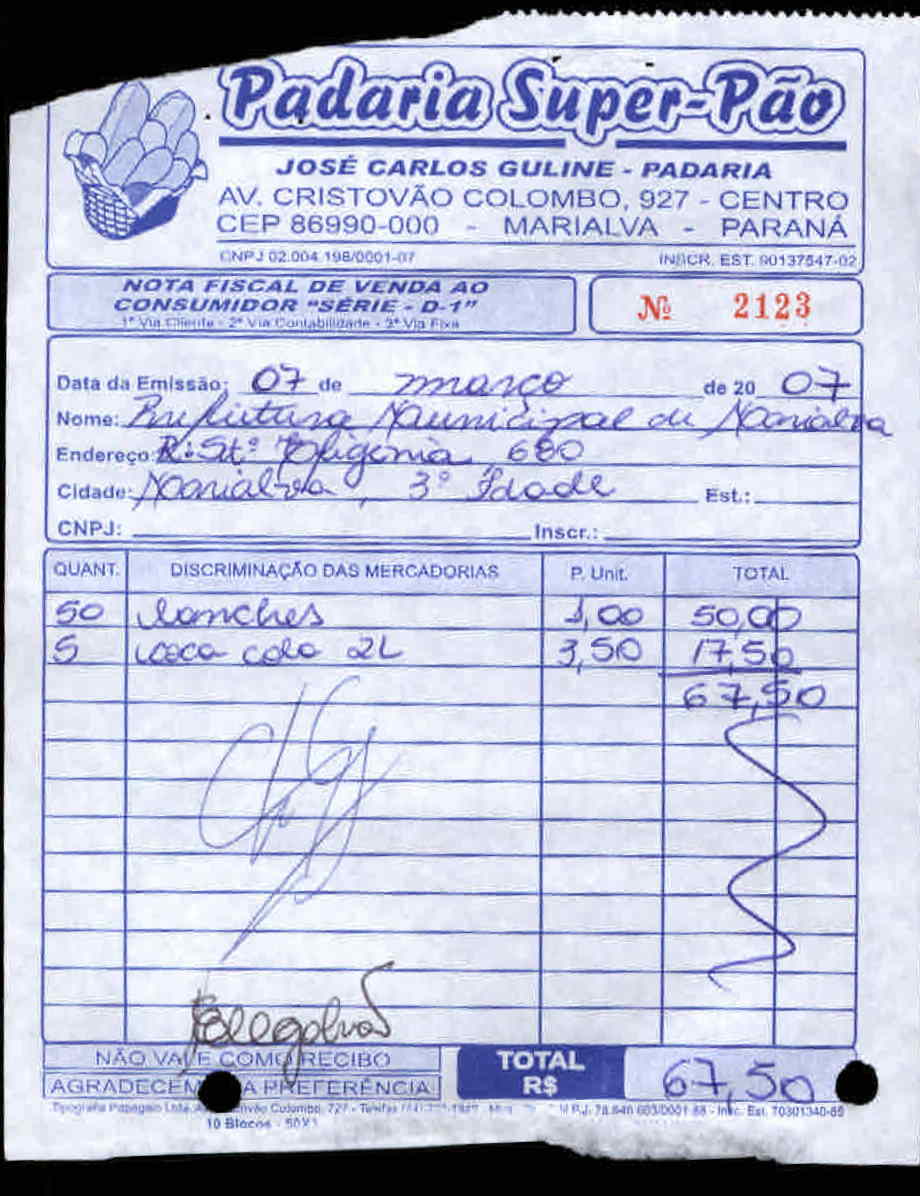 Padaria Super-Pão
JOSÉ CARLOS GULINE - PADARIA
AV. CRISTOVÃO COLOMBO, 927 - CENTRO
CEP 86990-000 - MARIALVA - PARANÁ
CNPJ 02.004.198/0001-07 INSCR. EST. 90137547-02
NOTA FISCAL DE VENDA AO
CONSUMIDOR "SÉRIE - D-1"
1ª Via Cliente - 2ª Via Contabilidade - 3ª Via Fixa
Nº 2123
Data da Emissão: 07 de março de 20 07
Nome: Prefeitura Municipal de Marialva
Endereço: R: Stª Efigenia 680
Cidade: Marialva, 3ª Idade Est.:
CNPJ: Inscr.:
QUANT. DISCRIMINAÇÃO DAS MERCADORIAS P. Unit. TOTAL
50 lanches 1,00 50,00
5 coca cola 2L 3,50 17,50
67,50
NÃO VALE COMO RECIBO
AGRADECEM A PREFERÊNCIA
TOTAL
R$ 67,50
Tipografia Papagaio Ltda. Colombo, 727 - 78.640.603/0001-88 - Insc. Est. 70301340-85
10 Blocos - 50X1